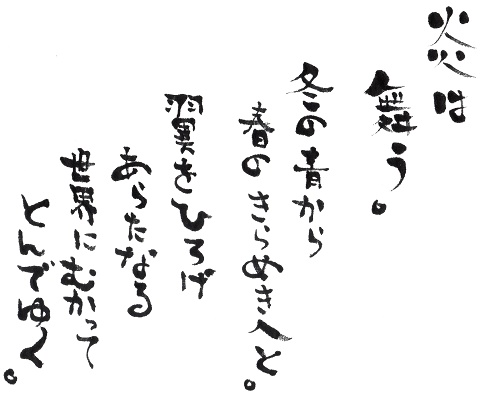 炎は
舞う。
冬の青から
春のきらめきへと。
翼をひろげ
あらたなる
世界にむかって
とんでゆく。